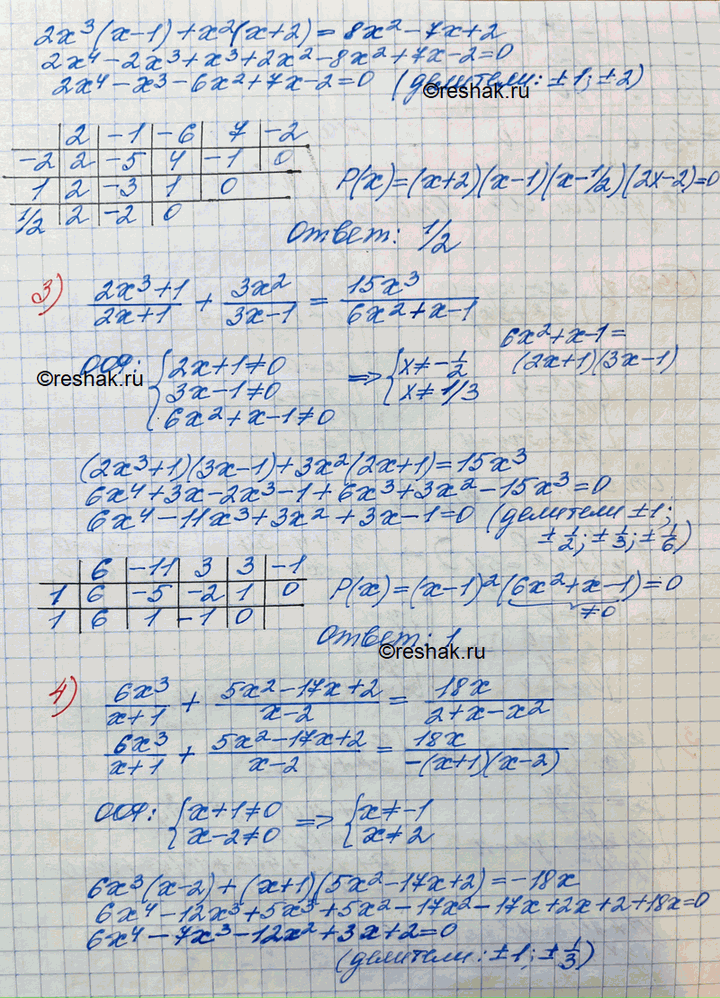 2x³(x-1)+x²(x+2)=8x²-7x+2
2x⁴-2x³+x³+2x²-8x²+7x-2=0
2x⁴-x³-6x²+7x-2=0 (делители: ±1; ±2)
©reshak.ru
2 -1 -6 7 -2
-2 2 -5 4 -1 0
1 2 -3 1 0
1/2 2 -2 0
P(x)=(x+2)(x-1)(x-1/2)(2x-2)=0
Ответ: 1/2
3) (2x³+1)/(2x+1) + 3x²/(3x-1) = 15x³/(6x²+x-1)
6x²+x-1=
(2x+1)(3x-1)
ОДЗ: {2x+1≠0 => {x≠-1/2
3x-1≠0 x≠1/3
6x²+x-1≠0
©reshak.ru
(2x³+1)(3x-1)+3x²(2x+1)=15x³
6x⁴+3x-2x³-1+6x³+3x²-15x³=0
6x⁴-11x³+3x²+3x-1=0 (делители ±1;
±1/2; ±1/3; ±1/6)
6 -11 3 3 -1
1 6 -5 -2 1 0
1 6 1 -1 0
P(x)=(x-1)²(6x²+x-1)=0
≠0
Ответ: 1
©reshak.ru
4) 6x³/(x+1) + (5x²-17x+2)/(x-2) = 18x/(2+x-x²)
6x³/(x+1) + (5x²-17x+2)/(x-2) = 18x/(-(x+1)(x-2))
ОДЗ: {x+1≠0 => {x≠-1
x-2≠0 x≠2
6x³(x-2)+(x+1)(5x²-17x+2)=-18x
6x⁴-12x³+5x³+5x²-17x²-17x+2x+2+18x=0
6x⁴-7x³-12x²+3x+2=0
(делители: ±1; ±1/3)